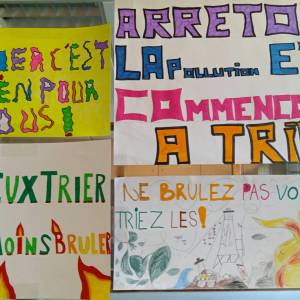 ER C'EST
EN POUR
OUS !
ARRETO
LA POLLUTION E
COMMENC
A TRI
EUX TRIER
MOINS BRULER
NE BRULEZ PAS VO
TRIEZ LES !